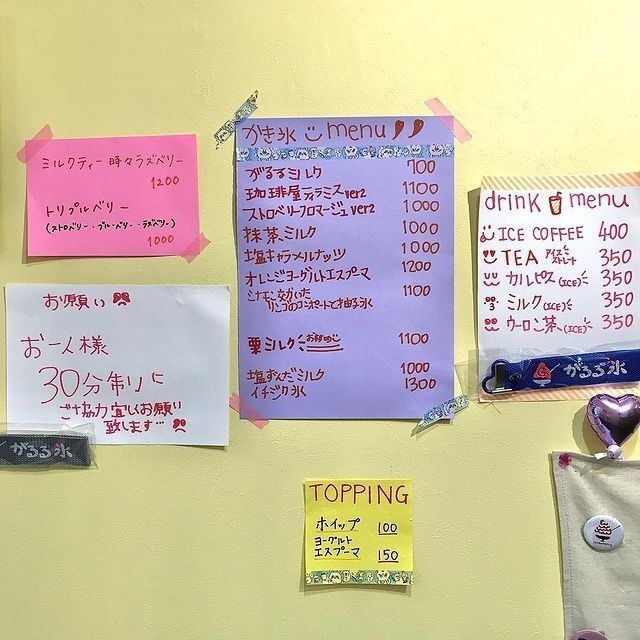 ミルクティー 時々ラズベリー
1200
トリプルベリー
(ストロベリー・ブルーベリー・ラズベリー)
1000
お願い
お一人様
30分制に
ご協力宜しくお願い
致します…
がるる氷
かき氷 menu
がるるミルク 700
珈琲屋ティラミスver2 1100
ストロベリーフロマージュver2 1000
抹茶ミルク 1000
塩キャラメルナッツ 1000
オレンジヨーグルトエスプーマ 1200
シナモン効かいた
リンゴのコンポートと柚子氷 1100
栗ミルク おすすめ 1100
塩おんだミルク 1000
イチジク氷 1300
drink menu
ICE COFFEE 400
TEA アイス ストレート 350
カルピス(ICE) 350
ミルク(ICE) 350
ウーロン茶(ICE) 350
がるる氷
TOPPING
ホイップ 100
ヨーグルト
エスプーマ 150